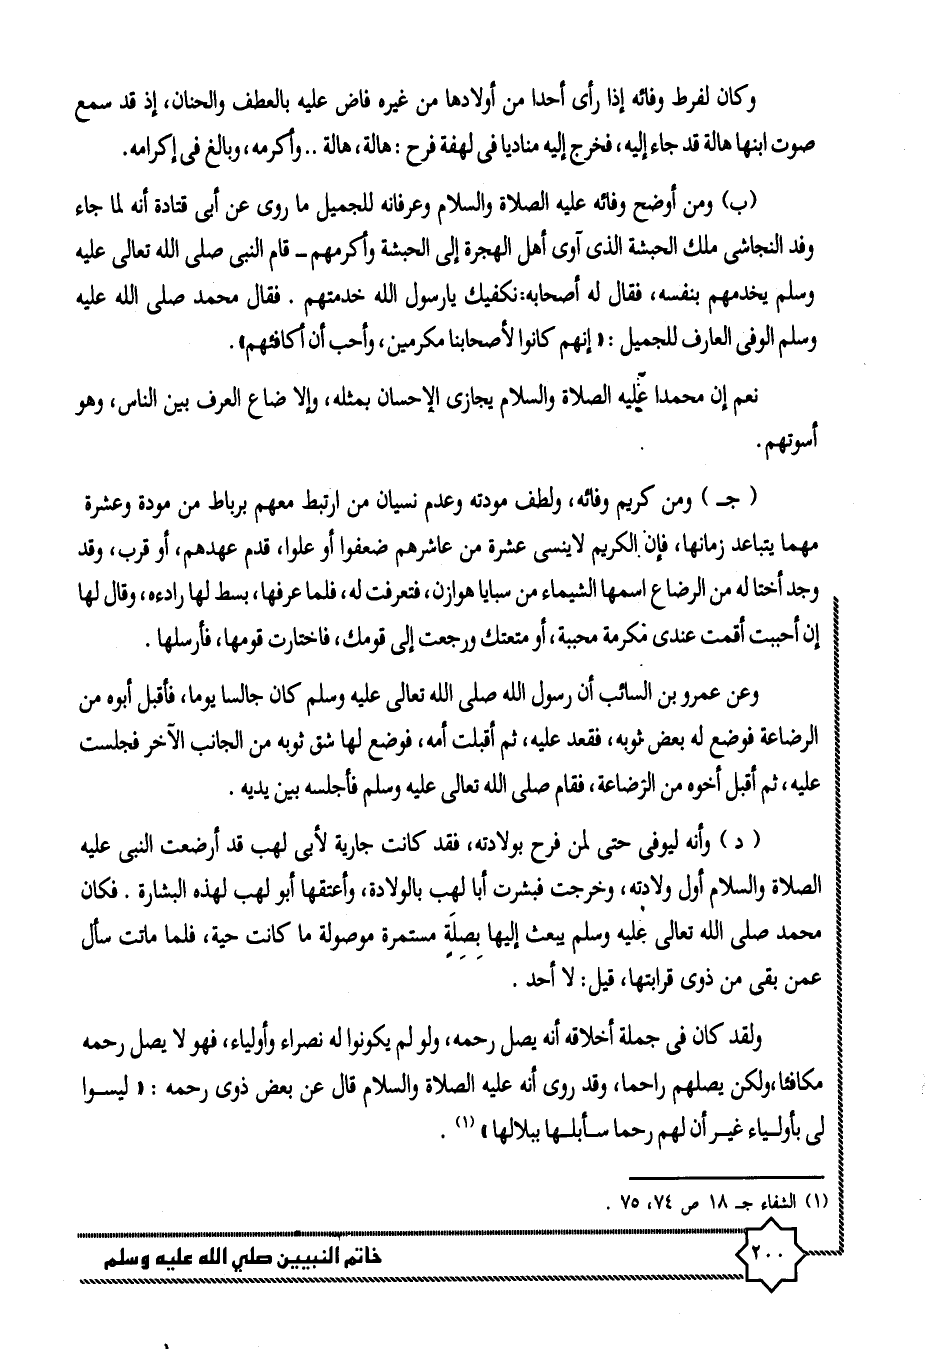 وكان لفرط وفائه إذا رأى أحدا من أولادها من غيره فاض عليه بالعطف والحنان، إذ قد سمع
صوت ابنها هالة قد جاء إليه، فخرج إليه مناديا فى لهفة فرح : هالة، هالة .. وأكرمه، وبالغ فى إكرامه.
(ب) ومن أوضح وفائه عليه الصلاة والسلام وعرفانه للجميل ما روى عن أبى قتادة أنه لما جاء
وفد النجاشى ملك الحبشة الذى آوى أهل الهجرة إلى الحبشة وأكرمهم ــ قام النبى صلى الله تعالى عليه
وسلم يخدمهم بنفسه، فقال له أصحابه:نكفيك يارسول الله خدمتهم . فقال محمد صلى الله عليه
وسلم الوفى العارف للجميل : « إنهم كانوا لأصحابنا مكرمين، وأحب أن أكافئهم» .
نعم إن محمدا عليه الصلاة والسلام يجازى الإحسان بمثله، وإلا ضاع العرف بين الناس، وهو
أسوتهم .
( جـ ) ومن كريم وفائه، ولطف مودته وعدم نسيان من ارتبط معهم برباط من مودة وعشرة
مهما يتباعد زمانها، فإن الكريم لاينسى عشرة من عاشرهم ضعفوا أو علوا، قدم عهدهم، أو قرب، وقد
وجد أختا له من الرضاع اسمها الشيماء من سبايا هوازن، فتعرفت له، فلما عرفها، بسط لها رادءه، وقال لها
إن أحببت أقمت عندى مكرمة محببة، أو متعتك ورجعت إلى قومك، فاختارت قومها، فأرسلها .
وعن عمرو بن السائب أن رسول الله صلى الله تعالى عليه وسلم كان جالسا يوما، فأقبل أبوه من
الرضاعة فوضع له بعض ثوبه، فقعد عليه، ثم أقبلت أمه، فوضع لها شق ثوبه من الجانب الآخر فجلست
عليه، ثم أقبل أخوه من الرَضاعة، فقام صلى الله تعالى عليه وسلم فأجلسه بين يديه .
( د ) وأنه ليوفى حتى لمن فرح بولادته، فقد كانت جارية لأبى لهب قد أرضعت النبى عليه
الصلاة والسلام أول ولادته، وخرجت فبشرت أبا لهب بالولادة، وأعتقها أبو لهب لهذه البشارة . فكان
محمد صلى الله تعالى عليه وسلم يبعث إليها بِصِلَةٍ مستمرة موصولة ما كانت حية، فلما ماتت سأل
عمن بقى من ذوى قرابتها، قيل: لا أحد .
ولقد كان فى جملة أخلاقه أنه يصل رحمه، ولو لم يكونوا له نصراء وأولياء، فهو لا يصل رحمه
مكافئا،ولكن يصلهم راحما، وقد روى أنه عليه الصلاة والسلام قال عن بعض ذوى رحمه : « ليســوا
لى بأولــياء غيــر أن لهم رحما ســأبلــها ببلالها» (١) .
(١) الشفاء جـ ١٨ ص ٧٤، ٧٥ .
٢٠٠
خاتم النبيين صلي الله عليه وسلم